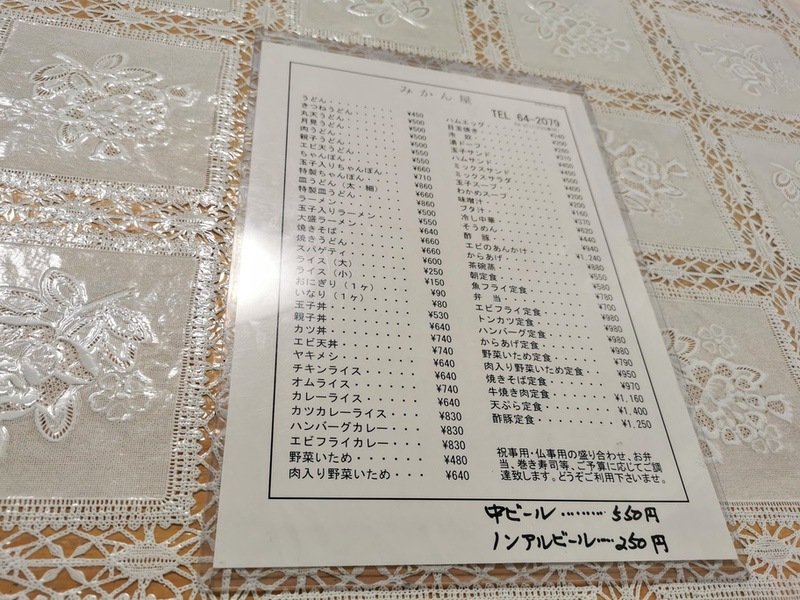 みかん屋
TEL 64-2079
うどん・・・・・・・¥450
きつねうどん・・・・・¥500
丸天うどん・・・・・・¥500
月見うどん・・・・・・¥500
肉うどん・・・・・・・¥550
親子うどん・・・・・・¥550
エビ天うどん・・・・・¥550
ちゃんぽん・・・・・・¥660
玉子入りちゃんぽん・・¥710
特製ちゃんぽん・・・・¥860
皿うどん（太・細）・・¥660
特製皿うどん・・・・・¥860
ラーメン・・・・・・・¥500
玉子入りラーメン・・・¥550
大盛ラーメン・・・・・¥640
焼きそば・・・・・・・¥660
焼きうどん・・・・・・¥660
スパゲティ・・・・・・¥600
ライス（大）・・・・・¥250
ライス（小）・・・・・¥150
おにぎり（1ヶ）・・・¥90
いなり（1ヶ）・・・・¥80
玉子丼・・・・・・・・¥530
親子丼・・・・・・・・¥640
カツ丼・・・・・・・・¥740
エビ天丼・・・・・・・¥740
ヤキメシ・・・・・・・¥640
チキンライス・・・・・¥640
オムライス・・・・・・¥740
カレーライス・・・・・¥640
カツカレーライス・・・¥830
ハンバーグカレー・・・¥830
エビフライカレー・・・¥830
野菜いため・・・・・・¥480
肉入り野菜いため・・・¥640
ハムエッグ・・・・・・¥240
目玉焼き・・・・・・・¥200
冷奴・・・・・・・・・¥260
湯ドーフ・・・・・・・¥310
玉子サンド・・・・・・¥400
ハムサンド・・・・・・¥450
ミックスサンド・・・・¥500
ミックスサラダ・・・・¥400
玉子スープ・・・・・・¥200
わかめスープ・・・・・¥200
味噌汁・・・・・・・・¥160
ブタ汁・・・・・・・・¥370
冷し中華・・・・・・・¥620
そうめん・・・・・・・¥440
酢　豚・・・・・・・・¥940
エビのあんかけ・・・・¥1,240
からあげ・・・・・・・¥880
茶碗蒸・・・・・・・・¥550
朝定食・・・・・・・・¥580
魚フライ定食・・・・・¥780
弁　当・・・・・・・・¥700
エビフライ定食・・・・¥980
トンカツ定食・・・・・¥980
ハンバーグ定食・・・・¥980
からあげ定食・・・・・¥980
野菜いため定食・・・・¥790
肉入り野菜いため定食・・¥950
焼きそば定食・・・・・¥970
牛焼き肉定食・・・・・¥1,160
天ぷら定食・・・・・・¥1,400
酢豚定食・・・・・・・¥1,250
祝事用・仏事用の盛り合わせ、お弁
当、巻き寿司等、ご予算に応じてご調
達致します。どうぞご利用下さいませ。
中ビール………550円
ノンアルビール……250円